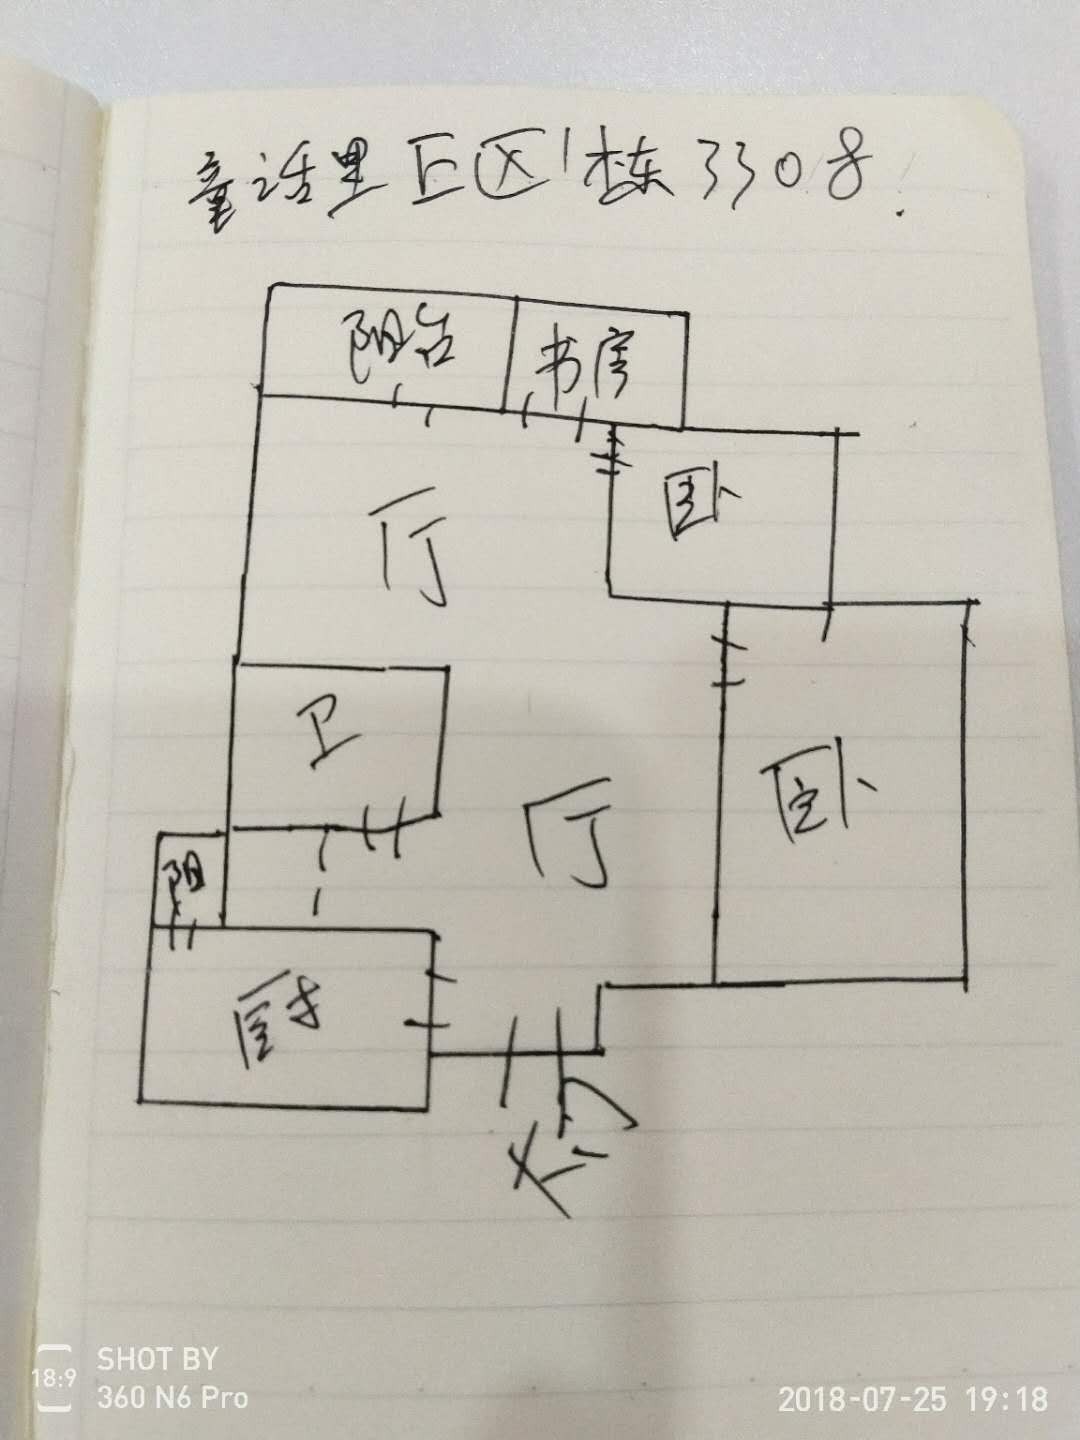 童话里E区1栋3308.
阳台 书房
卧
厅
卫
厅
卧
阳
厨
大门
18:9
SHOT BY
360 N6 Pro
2018-07-25 19:18